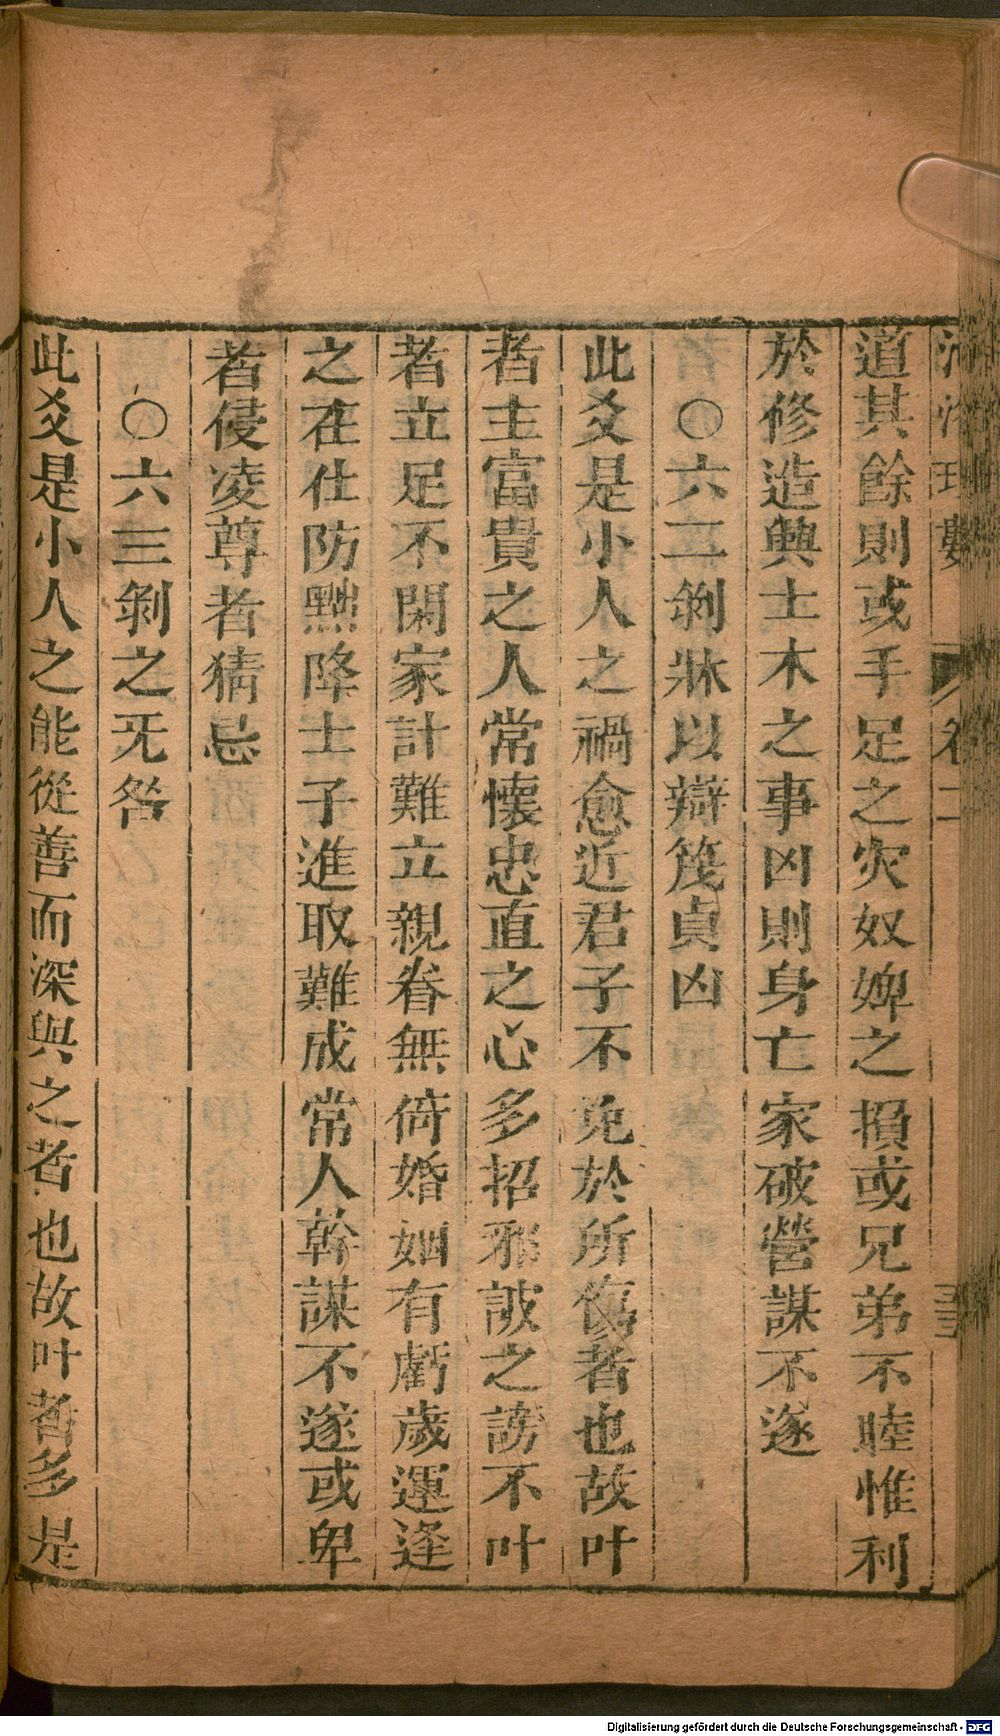 道其餘則或手足之灾奴婢之損或兄弟不睦惟利
於修造興土木之事凶則身亡家破營謀不遂
○六二剝牀以辯蔑貞凶
此爻是小人之禍愈近君子不免於所傷者也故叶
者主富貴之人常懷忠直之心多招邪詖之謗不叶
者立足不閑家計難立親眷無倚婚姻有虧歲運逢
之在仕防黜降士子進取難成常人幹謀不遂或卑
者侵凌尊者猜忌
○六三剝之旡咎
此爻是小人之能從善而深與之者也故叶者多是
卷二
Digitalisierung gefördert durch die Deutsche Forschungsgemeinschaft - DFG